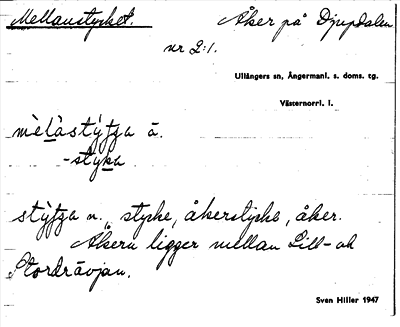 Mellanstycket. Åker på Djupdalen
nr 2:1.
Ullångers sn, Ångermanl. s. doms. tg.
Västernorrl. l.
ā.
-styka
n., stycke, åkerstycke, åker.
Åkern ligger mellan Lill- och
Stordrävjan.
Sven Hiller 1947